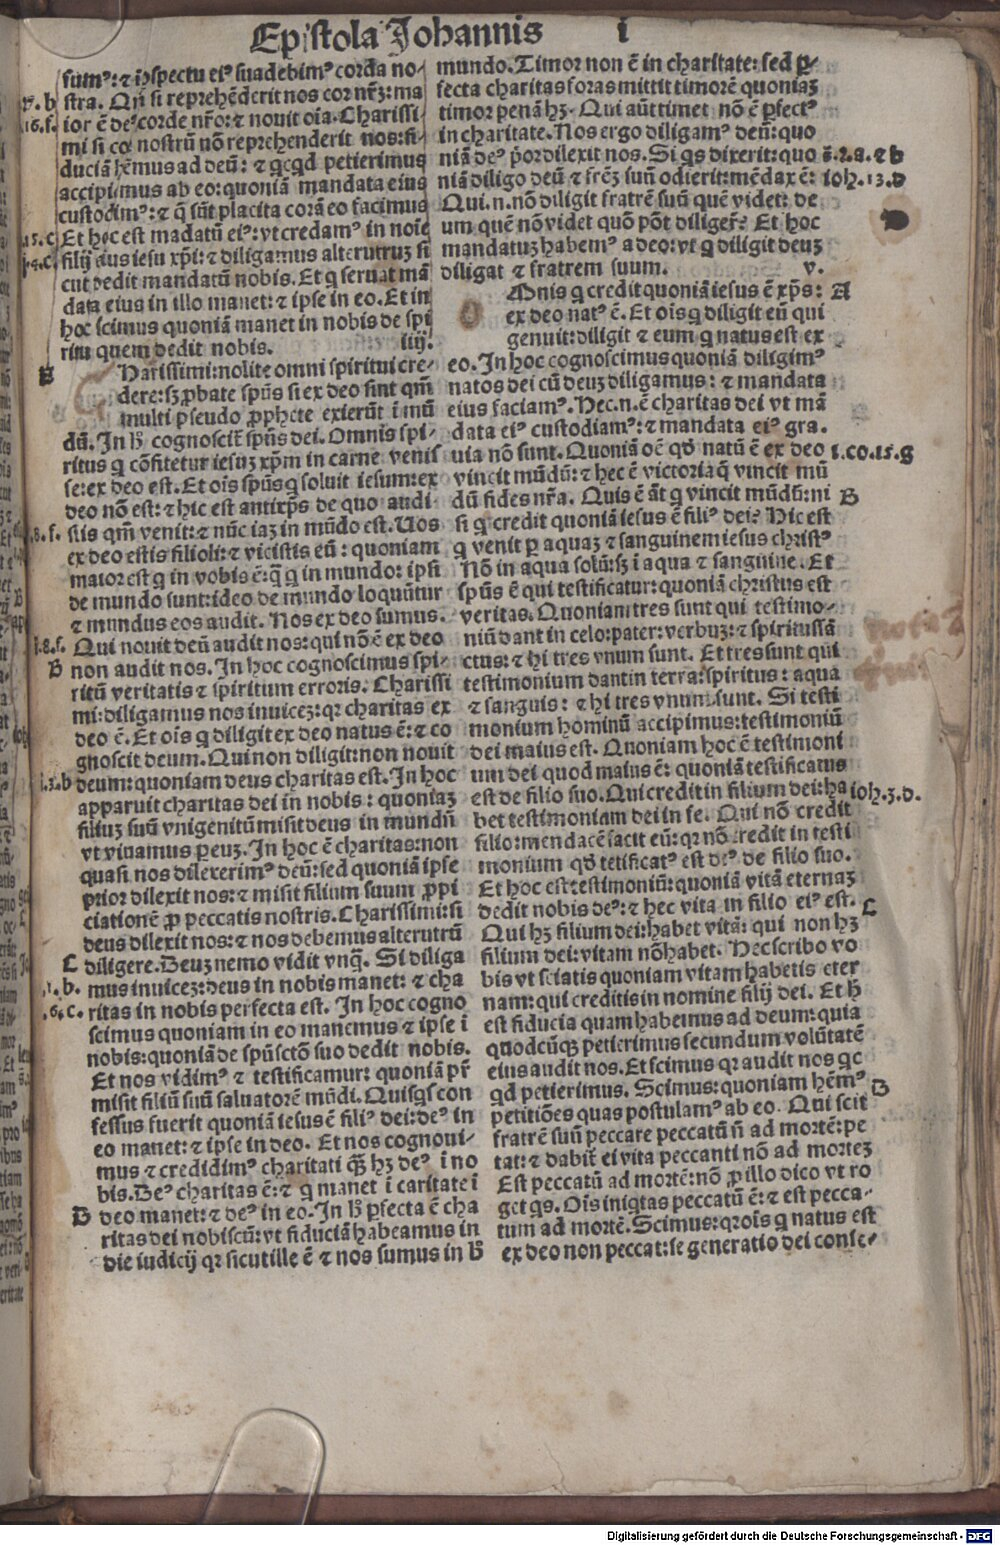 Epistola Johannis i
sumꝰ: ⁊ in ↄspectu eiꝰ suadebimꝰ corda no-
stra. Qm̄ si reprehēderit nos cor nr̄ꝫ: ma
ior ē deꝰ corde nr̄o: ⁊ nouit oīa. Charissi-
mi si cor nostrū nō reprehenderit nos: fi-
duciā hēmus ad deū: ⁊ qcqd petierimus
accipiemus ab eo: quoniā mandata eius
custodimꝰ: ⁊ q̄ sūt placita corā eo facimus
Et hec est mādatū eiꝰ: vt credamꝰ in noīe
filij eius iesu xp̄i: ⁊ diligamus alterutruꝫ si
cut dedit mandatū nobis. Et q seruat mā
data eius in illo manet: ⁊ ipse in eo. Et in
hoc scimus quoniā manet in nobis de spi
ritu quem dedit nobis. iiij.
Harissimi: nolite omni spiritui cre-
dere: sꝫ ꝓbate spūs si ex deo sint qm̄
multi pseudo ꝓphete exierūt ī mū
dū. In ħ cognoscit̄ spūs dei. Omnis spi-
ritus q cōfitetur iesuꝫ xp̄m in carne venis
se: ex deo est. Et oīs spūs q soluit iesum: ex
deo nō est: ⁊ hic est antixp̄s de quo audi-
stis qm̄ venit: ⁊ nūc iaꝫ in mūdo est. Uos
ex deo estis filioli: ⁊ vicistis eū: quoniam
maior est q in vobis ē: q̄ q in mundo: ipsi
de mundo sunt: ideo de mundo loquūtur
⁊ mundus eos audit. Nos ex deo sumus.
Qui nouit deū audit nos: qui nō ē ex deo
non audit nos. In hoc cognoscimus spi-
ritū veritatis ⁊ spiritum erroris. Charissi
mi: diligamus nos inuiceꝫ: qꝛ charitas ex
deo ē. Et oīs q diligit ex deo natus ē: ⁊ co
gnoscit deum. Qui non diligit: non nouit
deum: quoniam deus charitas est. In hoc
apparuit charitas dei in nobis: quoniaꝫ
filiuꝫ suū vnigenitū misit deus in mundū
vt viuamus ꝑ euꝫ. In hoc ē charitas: non
quasi nos dilexerimꝰ deū: sed quoniā ipse
prior dilexit nos: ⁊ misit filium suum ꝓpi
ciationē ꝓ peccatis nostris. Charissimi: si
deus dilexit nos: ⁊ nos debemus alterutrū
diligere. Deuꝫ nemo vidit vnq̄. Si diliga
mus inuiceꝫ: deus in nobis manet: ⁊ cha
ritas in nobis perfecta est. In hoc cogno
scimus quoniam in eo manemus ⁊ ipse ī
nobis: quoniā de spūsctō suo dedit nobis.
Et nos vidimꝰ ⁊ testificamur: quoniā pr̄
misit filiū suū saluatorē mūdi. Quisqs con
fessus fuerit quoniā iesus ē filiꝰ dei: deꝰ in
eo manet: ⁊ ipse in deo. Et nos cognoui-
mus ⁊ credidimꝰ charitati quā hꝫ deꝰ ī no
bis. Deꝰ charitas ē: ⁊ q manet ī caritate ī
deo manet: ⁊ deꝰ in eo. In ħ ꝑfecta ē cha
ritas dei nobiscū: vt fiduciā habeamus in
die iudicij qꝛ sicut ille ē ⁊ nos sumus in ħ
mundo. Timor non ē in charitate: sed ꝑ-
fecta charitas foras mittit timorē quoniaꝫ
timor penā hꝫ. Qui aūt timet nō ē ꝑfectꝰ
in charitate. Nos ergo diligamꝰ deū: quo
niā deꝰ prior dilexit nos. Si qs dixerit: quo
niā diligo deū ⁊ fr̄eꝫ suū odierit: mēdax ē:
Qui.n.nō diligit fratrē suū quē videt: de
um quē nō videt quō pōt diliger̄? Et hoc
mandatuꝫ habemꝰ a deo: vt q diligit deuꝫ
diligat ⁊ fratrem suum. v.
Omnis q credit quoniā iesus ē xp̄s:
ex deo natꝰ ē. Et oīs q diligit eū qui
genuit: diligit ⁊ eum q natus est ex
eo. In hoc cognoscimus quoniā diligimꝰ
natos dei cū deuꝫ diligamus: ⁊ mandata
eius faciamꝰ. Hec.n.ē charitas dei vt mā
data eiꝰ custodiamꝰ: ⁊ mandata eiꝰ gra.
uia nō sunt. Quoniā oē qd̄ natū ē ex deo
vincit mūdū: ⁊ hec ē victoria q̄ vincit mū
dū fides nr̄a. Quis ē āt q vincit mūdū: ni
si q credit quoniā iesus ē filiꝰ dei? Hic est
q venit ꝑ aquaꝫ ⁊ sanguinem iesus christꝰ
Nō in aqua solū: sꝫ ī aqua ⁊ sanguine. Et
spūs ē qui testificatur: quoniā christus est
veritas. Quoniam tres sunt qui testimo-
niū dant in celo: pater: verbuꝫ: ⁊ spiritussā
ctus: ⁊ hi tres vnum sunt. Et tres sunt qui
testimonium dant in terra: spiritus: aqua
⁊ sanguis: ⁊ hi tres vnum sunt. Si testi
monium hominū accipimus: testimoniū
dei maius est. Quoniam hoc ē testimoni
um dei quod maius ē: quoniā testificatus
est de filio suo. Qui credit in filium dei: ha
bet testimoniam dei in se. Qui nō credit
filio: mendacē facit eū: qꝛ nō credit in testi
monium qd̄ tetificatꝰ est deꝰ de filio suo.
Et hoc est testimoniū: quoniā vitā eternaꝫ
dedit nobis deꝰ: ⁊ hec vita in filio eiꝰ est.
Qui hꝫ filium dei: habet vitā: qui non hꝫ
filium dei: vitam nō habet. Hec scribo vo
bis vt sciatis quoniam vitam habetis eter
nam: qui creditis in nomine filij dei. Et ħ
est fiducia quam habemus ad deum: quia
quodcūqꝫ petierimus secundum volūtatē
eius audit nos. Et scimus qꝛ audit nos qc
qd petierimus. Scimus: quoniam hēmꝰ
petitiōes quas postulamꝰ ab eo. Qui scit
fratrē suū peccare peccatū n̄ ad mortē: pe
tat: ⁊ dabit̄ ei vita peccanti nō ad morteꝫ
Est peccatū ad mortē: nō ꝓ illo dico vt ro
get qs. Oīs iniqtas peccatū ē: ⁊ est pecca-
tum ad mortē. Scimus: qꝛ oīs q natus est
ex deo non peccat: se generatio dei conse-
B
B
C
D
ioh.13.d
A
1.co.15.g
B
ioh.3.d.
C
D
Digitalisierung gefördert durch die Deutsche Forschungsgemeinschaft - DFG